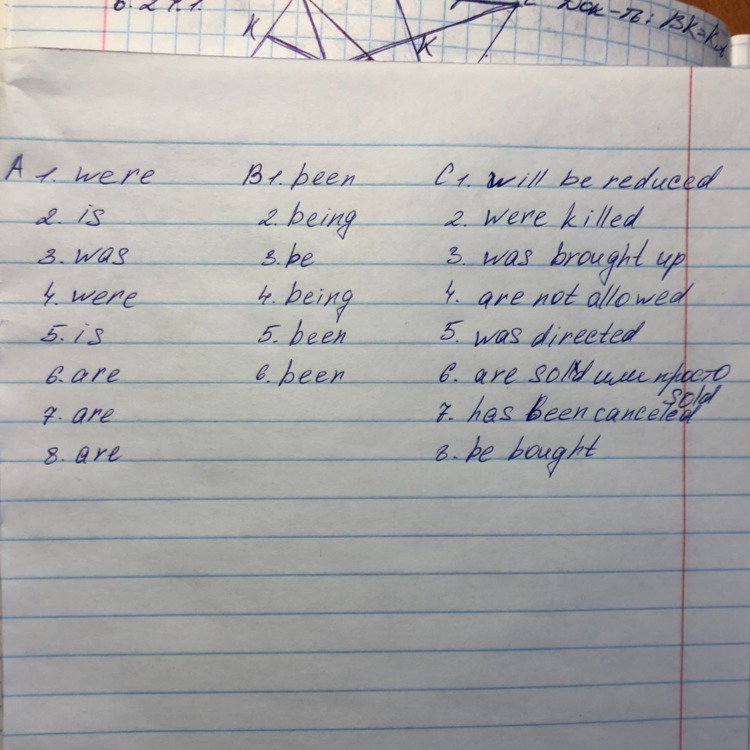 6.24.1.
K
K
C
ВК=К
A 1. were
2. is
3. was
4. were
5. is
6. are
7. are
8. are
B 1. been
2. being
3. be
4. being
5. been
6. been
C 1. will be reduced
2. were killed
3. was brought up
4. are not allowed
5. was directed
6. are sold или просто
sold
7. has been canceled
8. be bought